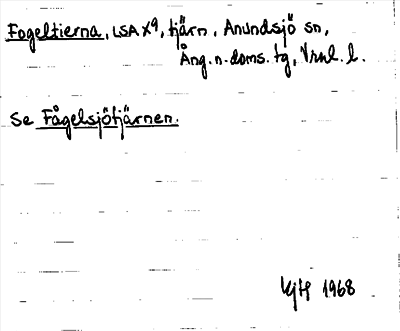 Fogeltierna, LSA X9, tjärn, Anundsjö sn,
Ång. n. doms. tg, Vrnl. l.
Se Fågelsjötjärnen.
1968